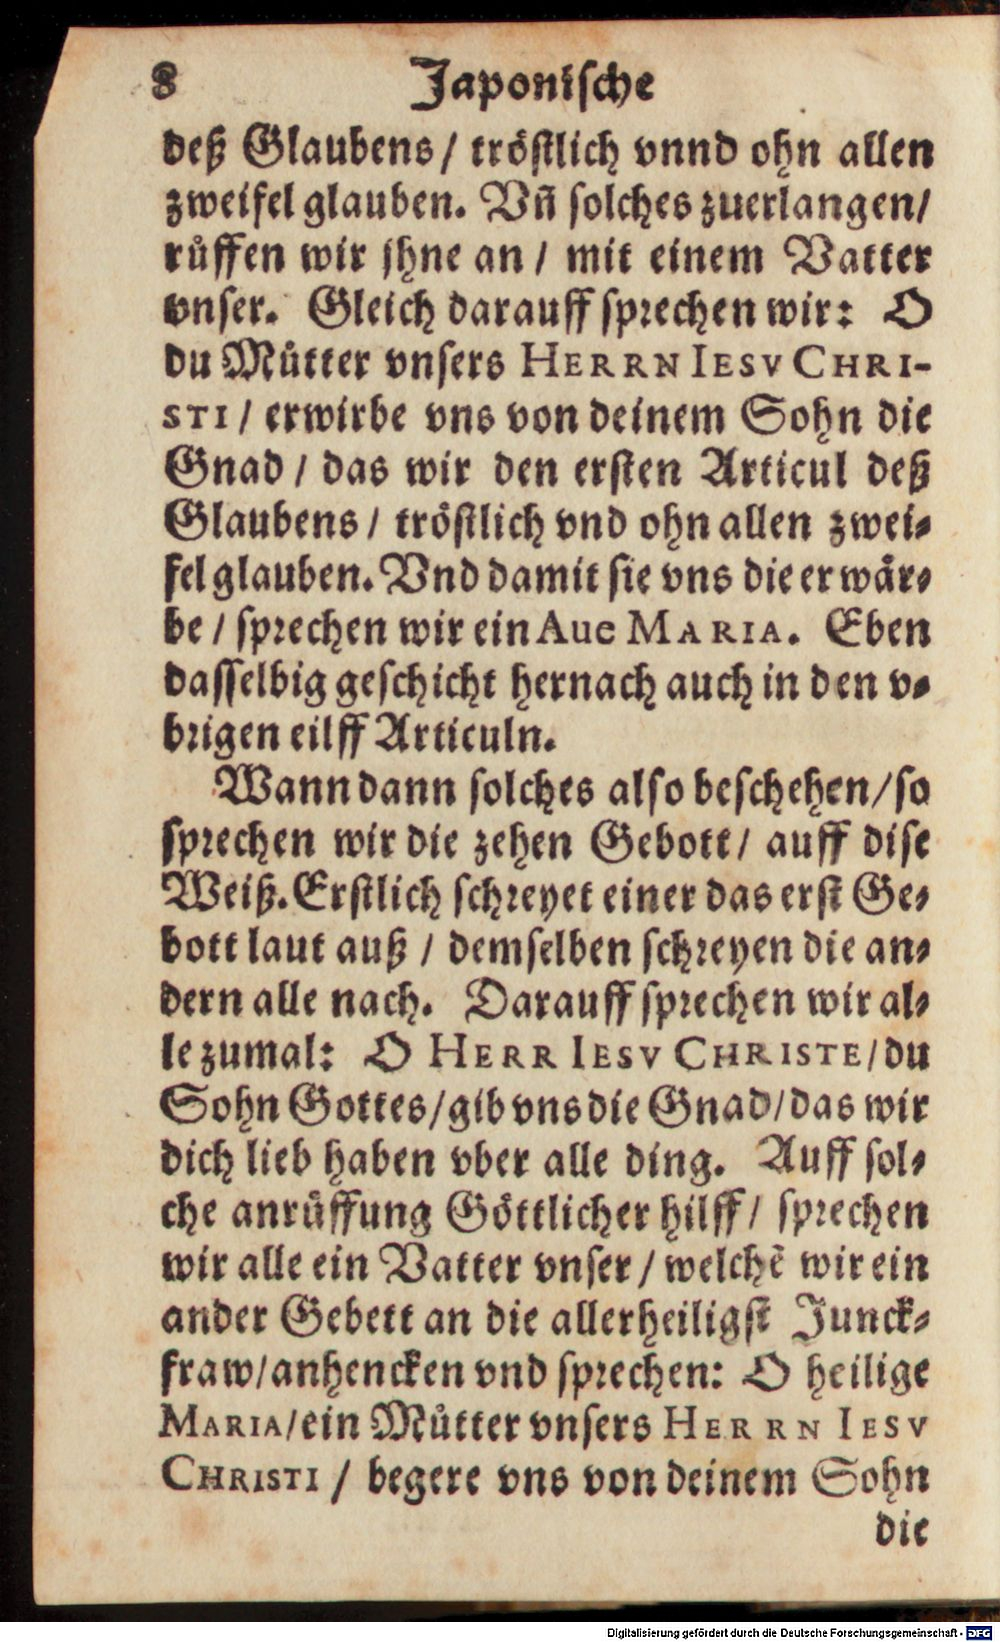 8 Japonische
deß Glaubens / tröstlich vnnd ohn allen
zweifel glauben. Vñ solches zuerlangen/
růffen wir jhne an / mit einem Vatter
vnser. Gleich darauff sprechen wir: O
du Můtter vnsers HERRN IESV CHRI-
STI / erwirbe vns von deinem Sohn die
Gnad / das wir den ersten Articul deß
Glaubens / tröstlich vnd ohn allen zwei-
fel glauben. Vnd damit sie vns die erwår-
be / sprechen wir ein Aue MARIA. Eben
dasselbig geschicht hernach auch in den v-
brigen eilff Articuln.
Wann dann solches also beschehen/so
sprechen wir die zehen Gebott/ auff dise
Weiß. Erstlich schreyet einer das erst Ge-
bott laut auß / demselben schreyen die an-
dern alle nach. Darauff sprechen wir al-
le zumal: O HERR IESV CHRISTE/du
Sohn Gottes/gib vns die Gnad/das wir
dich lieb haben vber alle ding. Auff sol-
che anrůffung Göttlicher hilff/ sprechen
wir alle ein Vatter vnser / welchẽ wir ein
ander Gebett an die allerheiligst Junck-
fraw/anhencken vnd sprechen: O heilige
MARIA/ein Můtter vnsers HERRN IESV
CHRISTI / begere vns von deinem Sohn
die
Digitalisierung gefördert durch die Deutsche Forschungsgemeinschaft - DFG